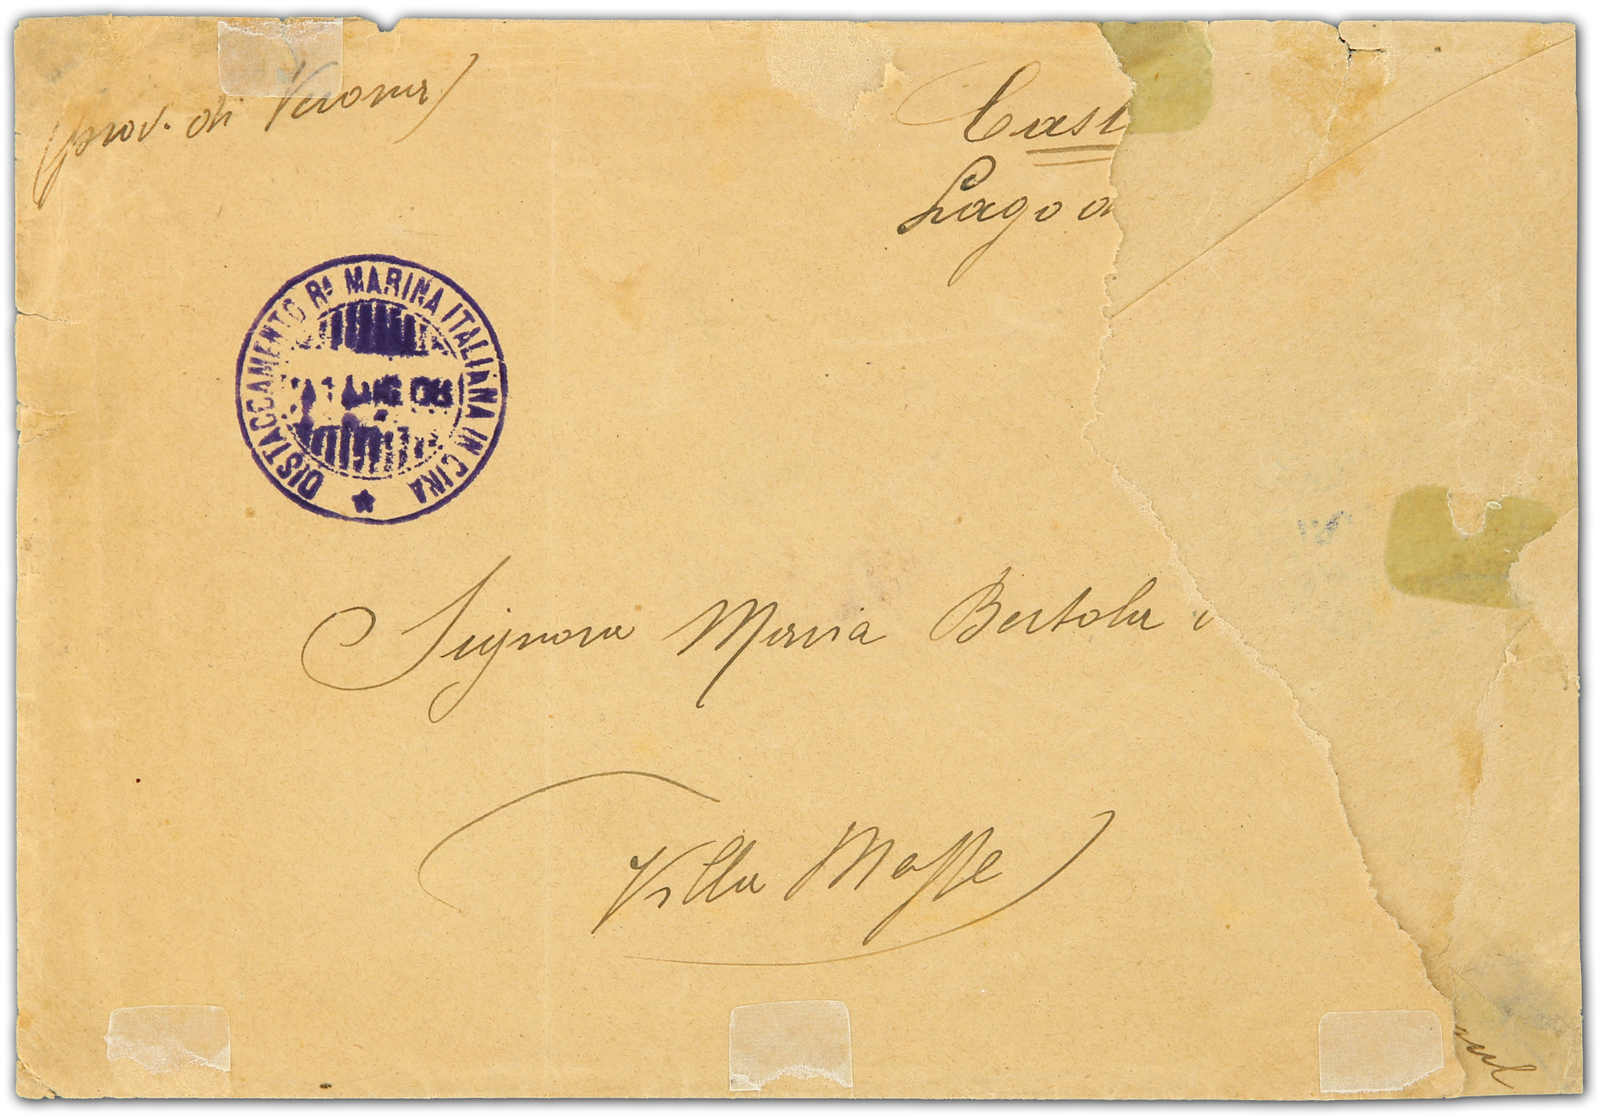 (prov. di Verona)
Cast
Lago d
DISTACCAMENTO Rª MARINA ITALIANA IN CINA
Signora Maria Bertola
Villa Masse